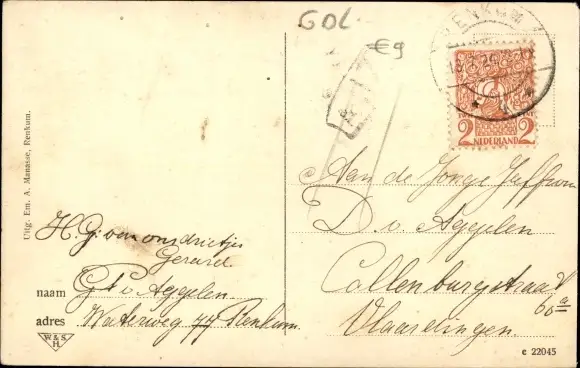 GOL
€9
RENKUM
2 CENT 2
NEDERLAND
Aan de Jonge Juffrouw
D. v. Aggelen
Collenburgstraat
60a
Vlaardingen.
H. G. van ons drietjes
Gerard
naam G. v. Aggelen.
adres Waterweg 77 Renkum.
Uitg. Em. A. Manasse, Renkum.
W. & S.
H.
c 22045